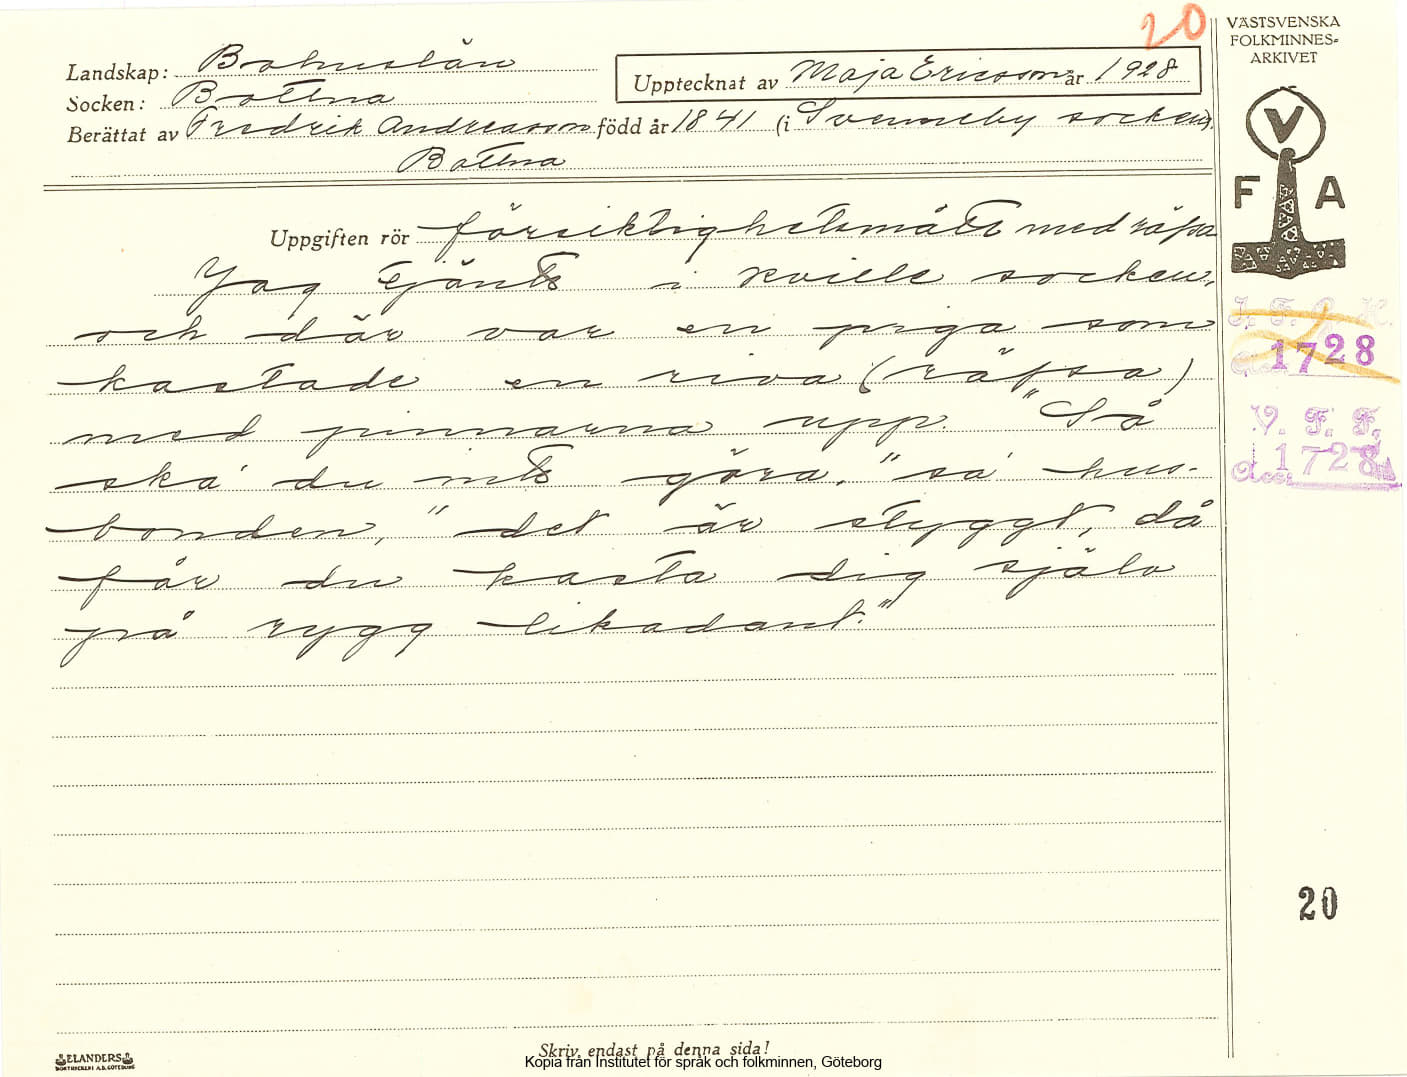 20
VÄSTSVENSKA
FOLKMINNES-
ARKIVET
Landskap: Bohuslän
Upptecknat av Maja Ericsson år 1928
Socken: Bottna
Berättat av Fredrik Andreasson född år 1841 (i Svenneby socken).
Bottna
V
F A
Uppgiften rör försiktighetsmått med räfsa
Jag tjänte i Kville socken,
och där var en piga som
kastade en riva (räfsa)
med pinnarna upp. "Så
ska' du inte göra," sa' hus-
bonden, "det är styggt, då
får du kasta dig själv
på rygg likadant."
1728
V. F. F.
Acc. 1728
20
ELANDERS
BOKTRYCKERI A.B. GÖTEBORG
Skriv endast på denna sida!
Kopia från Institutet för språk och folkminnen, Göteborg